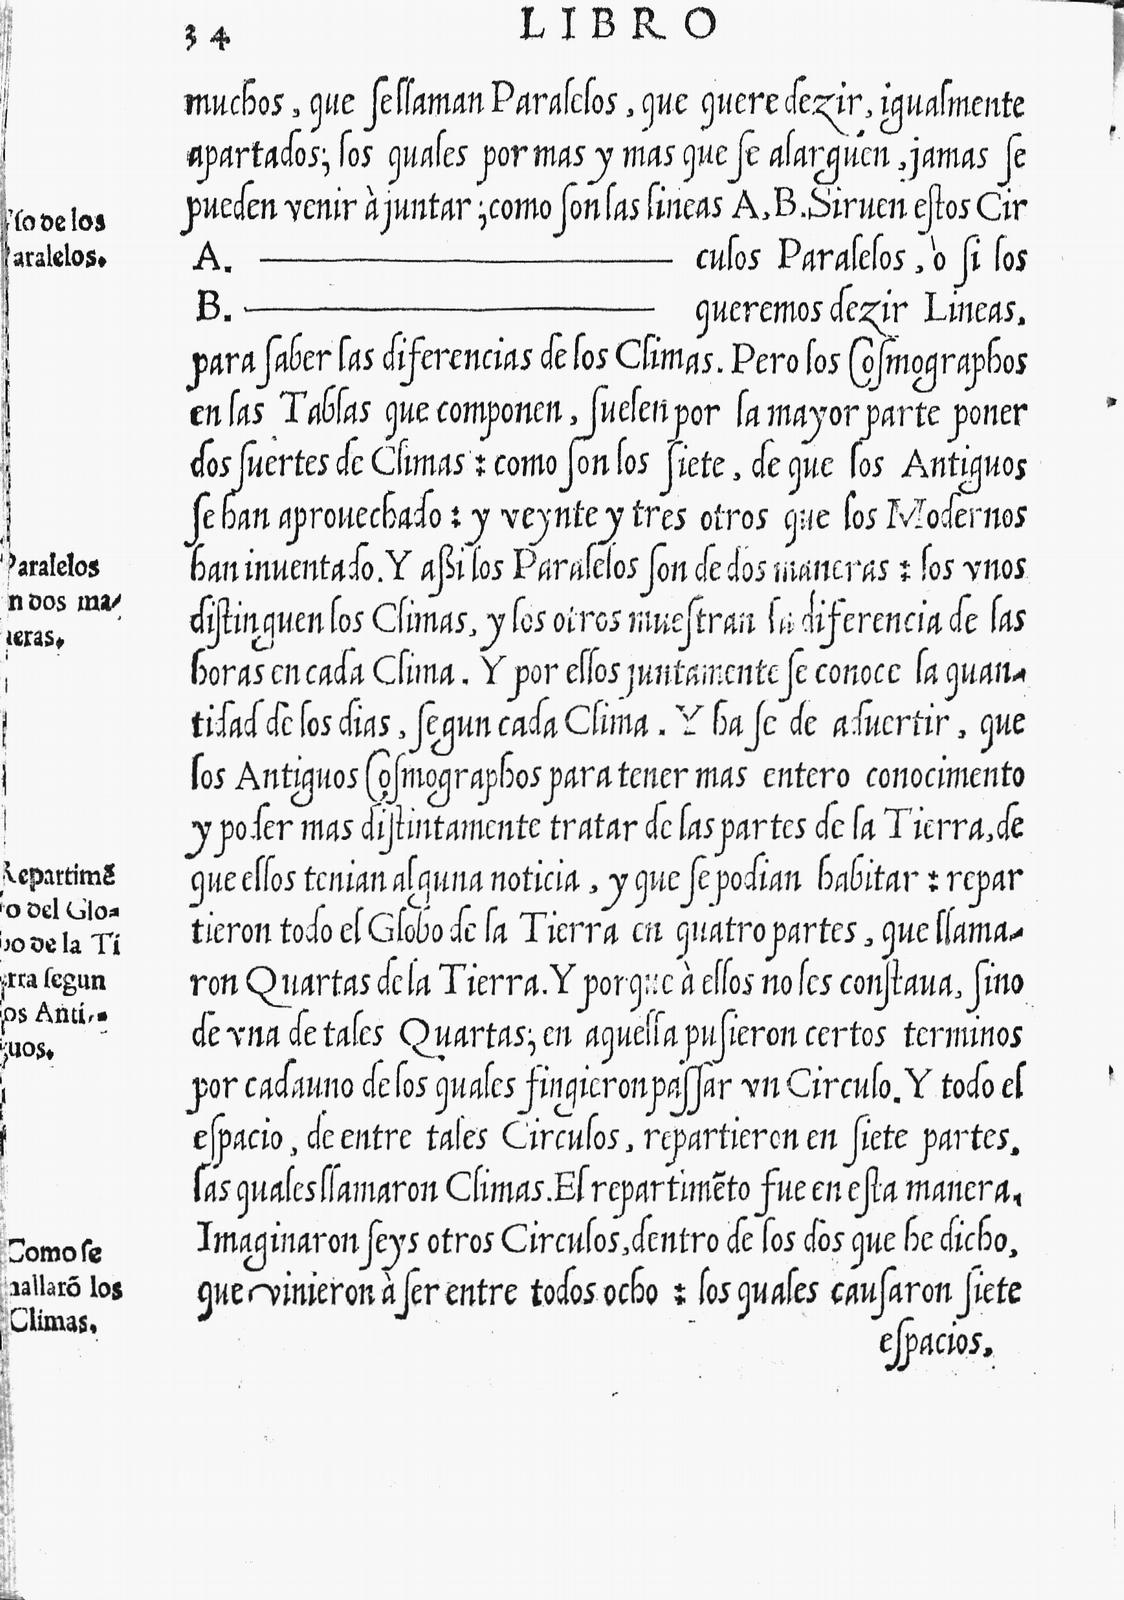 34
LIBRO
muchos, que se llaman Paralelos, que quere dezir, igualmente
apartados; los quales por mas y mas que se alarguen, jamas se
pueden venir à juntar; como son las lineas A, B. Siruen estos Cir
A. culos Paralelos, ò si los
B. queremos dezir Lineas.
para saber las diferencias de los Climas. Pero los Cosmographos
en las Tablas que componen, suelen por la mayor parte poner
dos suertes de Climas: como son los siete, de que los Antiguos
se han aprouechado: y veynte y tres otros que los Modernos
han inuentado. Y assi los Paralelos son de dos maneras: los vnos
distinguen los Climas, y los otros muestran la diferencia de las
horas en cada Clima. Y por ellos juntamente se conoce la quan-
tidad de los dias, segun cada Clima. Y ha se de aduertir, que
los Antiguos Cosmographos para tener mas entero conocimento
y poder mas distintamente tratar de las partes de la Tierra, de
que ellos tenian alguna noticia, y que se podian habitar: repar
tieron todo el Globo de la Tierra en quatro partes, que llama-
ron Quartas de la Tierra. Y porque à ellos no les constaua, sino
de vna de tales Quartas; en aquella pusieron certos terminos
por cada uno de los quales fingieron passar vn Circulo. Y todo el
espacio, de entre tales Circulos, repartieron en siete partes,
las quales llamaron Climas. El repartimẽto fue en esta manera.
Imaginaron seys otros Circulos, dentro de los dos que he dicho,
que vinieron à ser entre todos ocho: los quales causaron siete
espacios,
so de los
aralelos.
Paralelos
n dos ma-
neras.
Repartimẽ
to del Glo-
bo de la Ti
erra segun
los Anti-
guos.
Como se
hallarõ los
Climas.